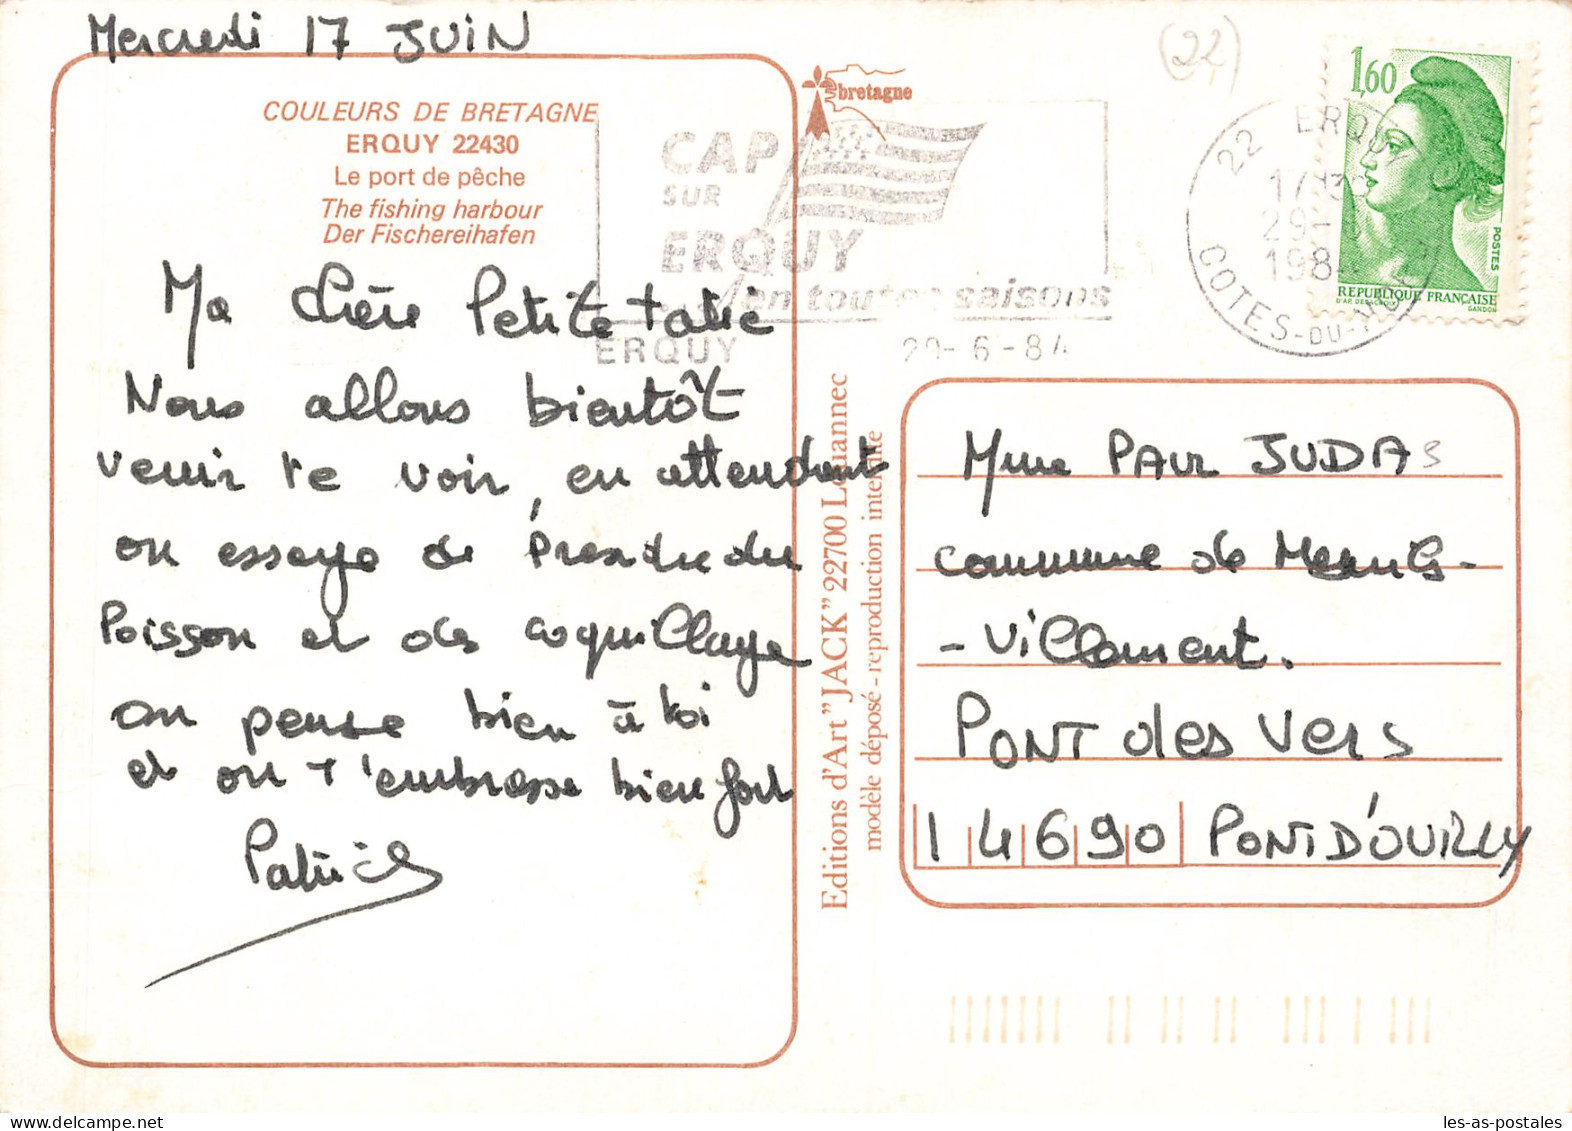 Mercredi 17 JUIN
(22)
COULEURS DE BRETAGNE
ERQUY 22430
Le port de pêche
The fishing harbour
Der Fischereihafen
bretagne
CAP
SUR
ERQUY
en toutes saisons
ERQUY
29-6-84
22 ERQUY
17H30
29-
1984
COTES-DU-NORD
1,60
POSTES
REPUBLIQUE FRANÇAISE
D'AP. DELACROIX
GANDON
Ma chère Petite tatie
Nous allons bientôt
venir te voir, en attendant
on essaye de prendre du
Poisson et des coquillage
on pense bien à toi
et on t'embrasse bien fort
Patrick
Editions d'Art "JACK" 22700 Louannec
modèle déposé - reproduction interdite
Mme PAUL JUDAS
commune de Mesnil-
-Villement.
PONT des Vers
14690 PONT D'OUILLY
les-as-postales